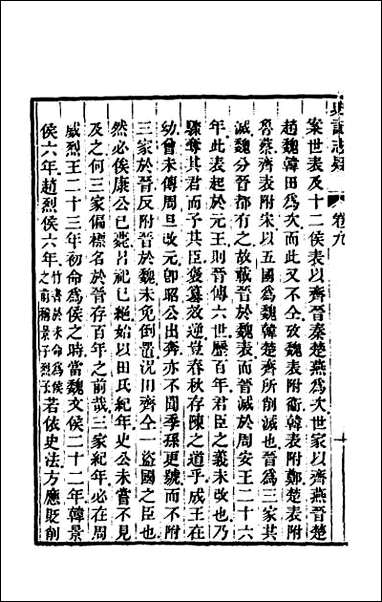 史記志疑　卷九
案世表及十二侯表以齊晉秦楚燕爲次世家以齊燕晉楚
趙魏韓田爲次而此又不仝攷魏表附衞韓表附鄭楚表附
魯蔡齊表附宋以五國爲魏韓楚齊所削滅也晉爲三家其
滅魏分晉都有之故載晉於魏表而晉滅於周安王二十六
年此表起於元王則晉傳六世歷百年君臣之義未改也乃
驟奪其君而予其臣襃簒放逆豈春秋存陳之道乎成王在
幼曾未傳周旦改元卽昭公出奔亦不聞季孫更號而不附
三家於晉反附晉於魏未免倒置況田齊仝一盜國之臣也
然必俟康公已薨呂祀已絕始以田氏紀年史公未嘗不見
及之何三家偏標名於晉存百年之前哉三家紀年必在周
威烈王二十三年初命爲侯之時當魏文侯二十二年韓景
侯六年趙烈侯六年竹書於未命爲侯之前稱景子烈子若依史法方應貶削